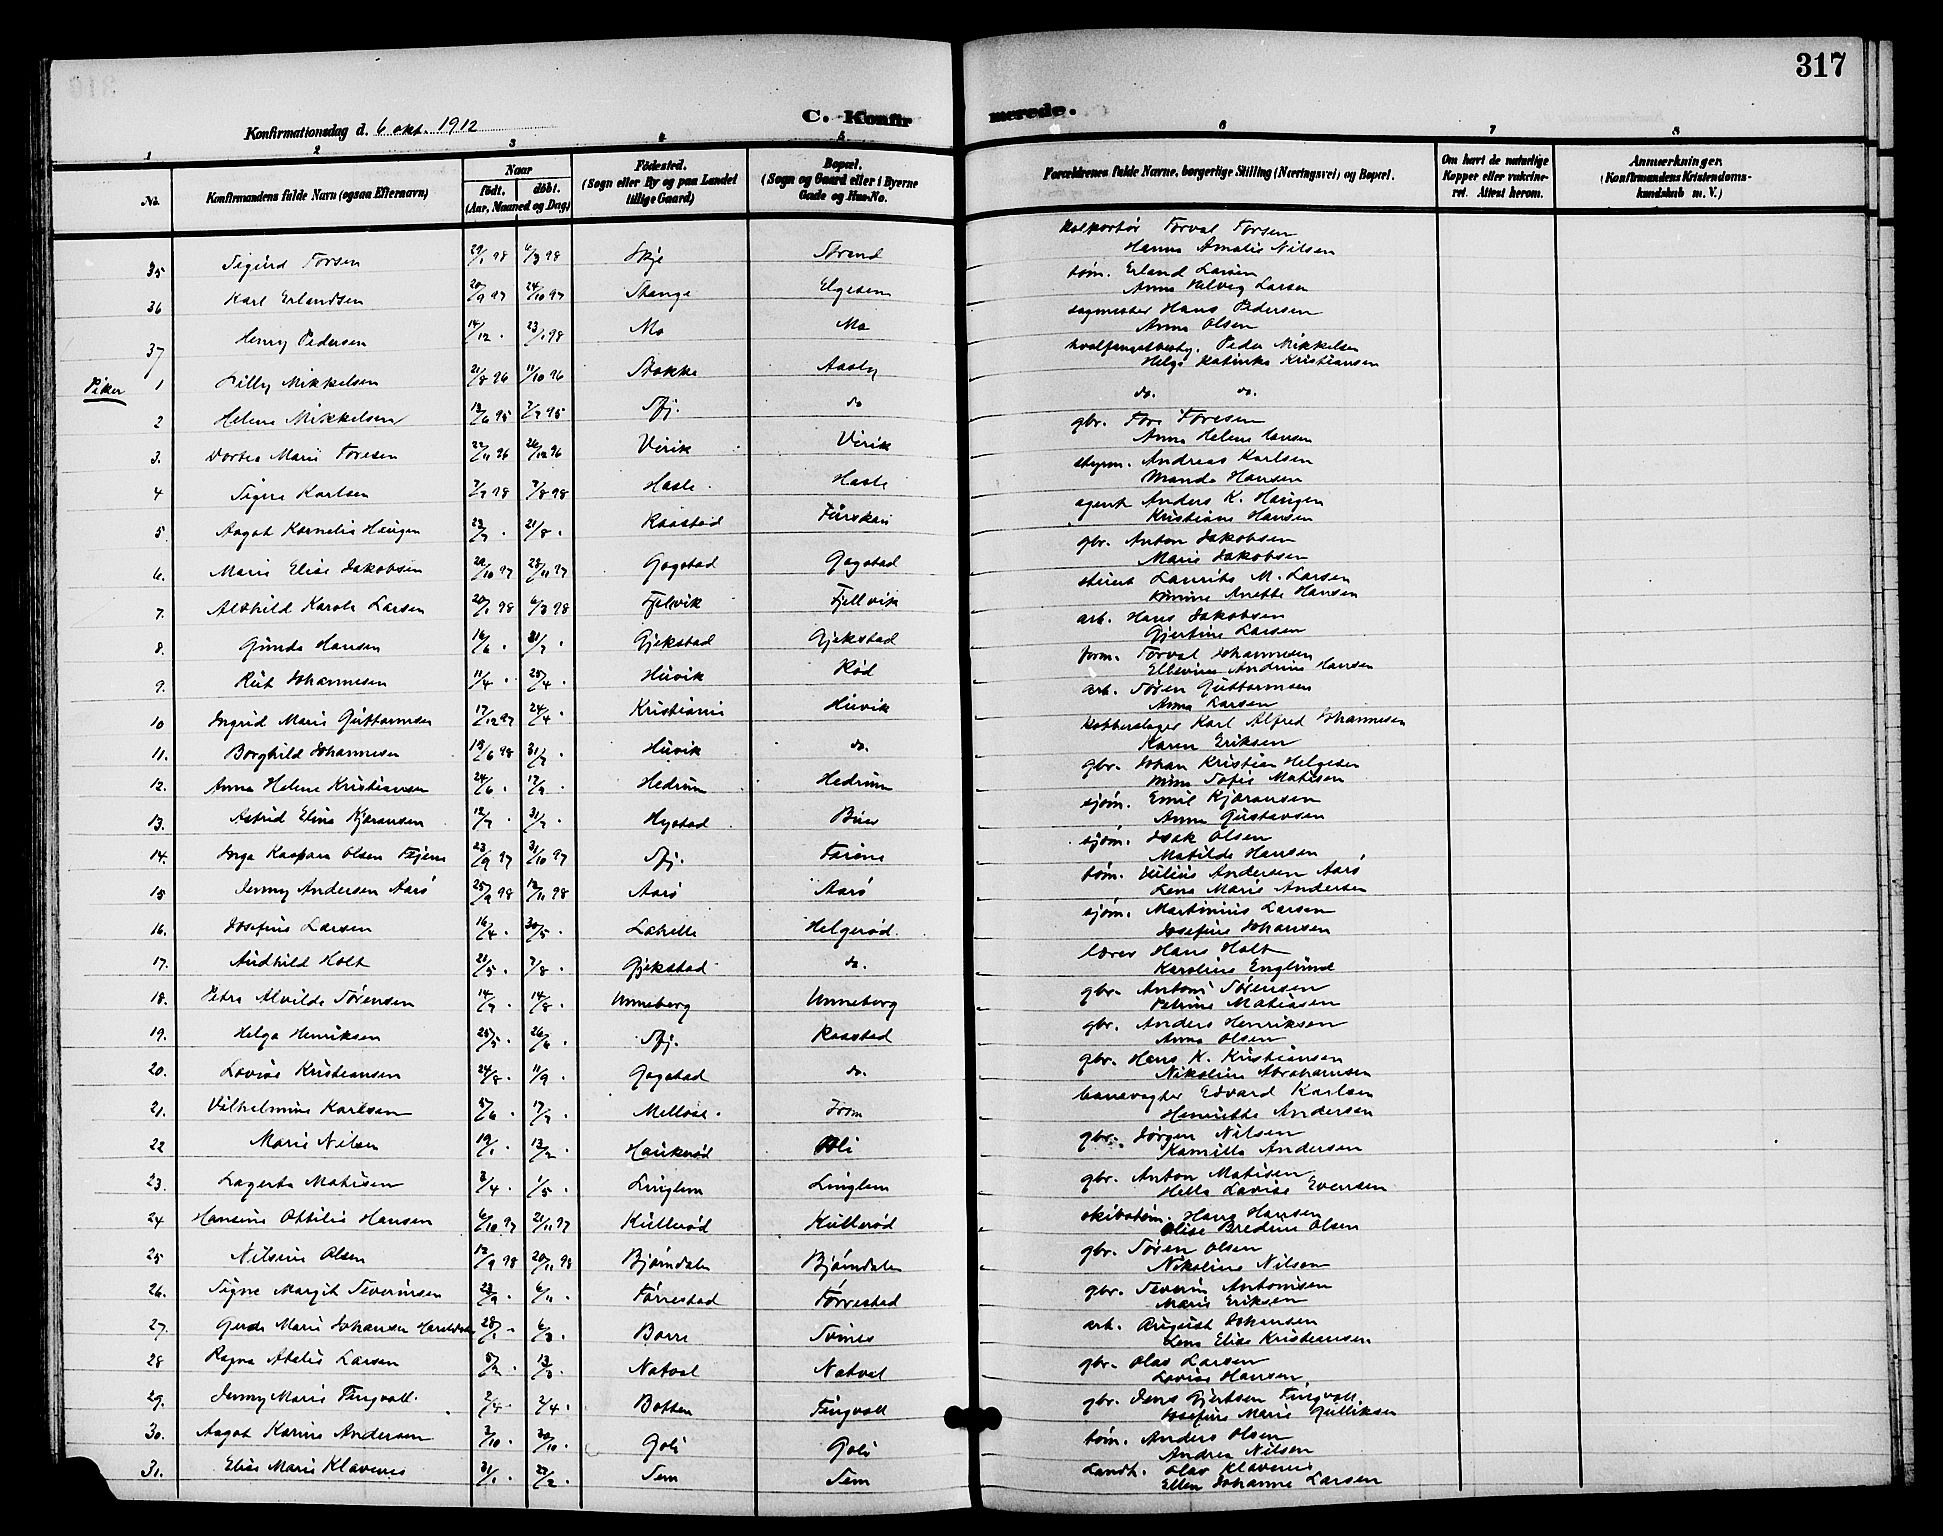 317
Konfirmationsdag d. 6 okt. 1912
C. Konfirmerede.
1 2 3 4 5 6 7 8
No. Konfirmandens fulde Navn (ogsaa Efternavn) Naar født. døbt. (Aar, Maaned og Dag) Fødested. (Sogn eller By og paa Landet tillige Gaard) Bopæl. (Sogn og Gaard eller i Byerne Gade og Hus-No. Forældrenes fulde Navne, borgerlige Stilling (Næringsvei) og Bopæl. Om havt de naturlige Kopper eller vakcineret. Attest herom. Anmærkninger. (Konfirmandens Kristendomskundskab m. V.)
35 Sigurd Torsen 29/1 98 6/3 98 Skje Strand kolportør Torval Torsen
Hanna Amalie Nilsen
36 Karl Erlandsen 20/9 97 24/10 97 Stange Elgesem tøm. Erland Larsen
Anna Helvig Larsen
37 Henry Pedersen 14/12 . 23/1 98 Mo Mo sagmester Hans Pedersen
Anna Olsen
Piker
1 Lilly Mikkelsen 21/8 96 11/10 96 Stokke Aasly hvalfangstbesty. Peder Mikkelsen
Helga Katinka Kristiansen
2 Helene Mikkelsen 13/6 95 7/7 95 Sfj. do do. do.
3. Dortea Marie Toresen 22/11 96 26/12 96 Virik Virik gbr. Tore Toresen
Anna Helene Hansen
4 Signe Karlsen 7/7 98 7/8 98 Hasle Hasle styrm. Andreas Karlsen
Manda Hansen
5. Aagot Kornelia Haugen 23/7 . 21/8 . Raastad Furskau agent Anders K. Haugen
Kristiane Hansen
6. Marie Elise Jakobsen 22/10 97 28/11 97 Gogstad Gogstad gbr. Anton Jakobsen
Marie Jakobsen
7. Alvhild Karola Larsen 20/1 98 6/3 98 Fjelvik Fjellvik stuert Laurits M. Larsen
Anette Hansen
8. Gunda Hansen 16/6 . 31/7 . Gjekstad Gjekstad arb. Hans Jakobsen
Gjertine Larsen
9. Rut Johannesen 11/4 . 25/4 . Huvik Rød form. Torval Johannesen
Ellevine Andrine Hansen
10 Ingrid Marie Guttormsen 17/12 97 24/4 . Kristiania Huvik arb. Søren Guttormsen
Anna Larsen
11. Borghild Johannesen 13/6 98 31/7 . Huvik do. kobberslager Karl Alfred Johannesen
Karen Eriksen
12. Anna Helene Kristiansen 24/6 . 17/7 . Hedrum Hedrum gbr. Johan Kristian Helgesen
Sofie Matisen
13. Astrid Elina Kjøransen 12/7 . 31/7 . Hystad Buer sjøm. Emil Kjøransen
Anna Gustavsen
14. Inga Kaspara Olsen 23/9 97 31/10 97 Sfj. Torene sjøm. Isak Olsen
Matilde Hansen
15 Jenny Andersen Aarø 25/9 98 13/11 98 Aarø Aarø tøm. Julius Andersen Aarø
Lena Marie Andersen
16. Josefine Larsen 16/4 . 30/5 . Lahelle Helgerød. sjøm. Martinius Larsen
Josefine Johansen
17. Audhild Holt 21/5 . 7/8 . Gjekstad do. lærer Hans Holt
Karoline Englund
18. Petra Alvilde Sørensen 14/7 . 14/8 . Unneberg Unneberg gbr. Antoni Sørensen
Petrine Matiasen
19. Helga Henriksen 25/5 . 26/6 . Sfj. Raastad gbr. Anders Henriksen
Anna Olsen
20. Lovise Kristiansen 24/8 . 11/9 . Gogstad do. gbr. Hans K. Kristiansen
Nikoline Abrahamsen
21. Vilhelmine Karlsen 5/6 . 17/7 . Melløse. From banevogter Edvard Karlsen
Henriette Andersen
22 Marie Nilsen 19/1 . 13/2 . Haukerød Oli gbr. Jørgen Nilsen
Kamilla Andersen
23. Lagerta Matisen 3/4 . 1/5 . Linglem Linglem gbr. Anton Matisen
Hella Lovise Evensen
24 Hansine Ottilie Hansen 6/10 97 21/11 97 Kullerød Kullerød skibstøm. Hans Hansen
Elise Bredine Olsen
25 Nilsine Olsen 12/9 98 20/11 98 Bjørndalen Bjørndalen gbr. Søren Olsen
Nikoline Nilsen
26. Signe Margit Severinsen 23/9 . 6/11 . Førrestad Førrestad gbr. Severin Antonisen
Marie Eriksen
27. Gerda Marie Johansen 28/1 . 6/3 . Borre Tømes arb. August Johansen
Lena Elise Kristiansen
28 Ragna Atalie Larsen 8/2 . 13/3 . Natvol Natvol gbr. Olav Larsen
Lovise Hansen
29. Jenny Marie Tingvoll. 2/4 . Botten Tingvoll gbr. Jens Gjertsen Tingvoll
Josefine Marie Gulliksen
30. Aagot Karine Andersen 2/10 . 30/10 . Goli Goli tøm. Anders Olsen
Andrea Nilsen
31. Elise Marie Klavenes 31/1 . 27/2 . Sem Sem Landh. Olav Klavenes
Ellen Johanne Larsen